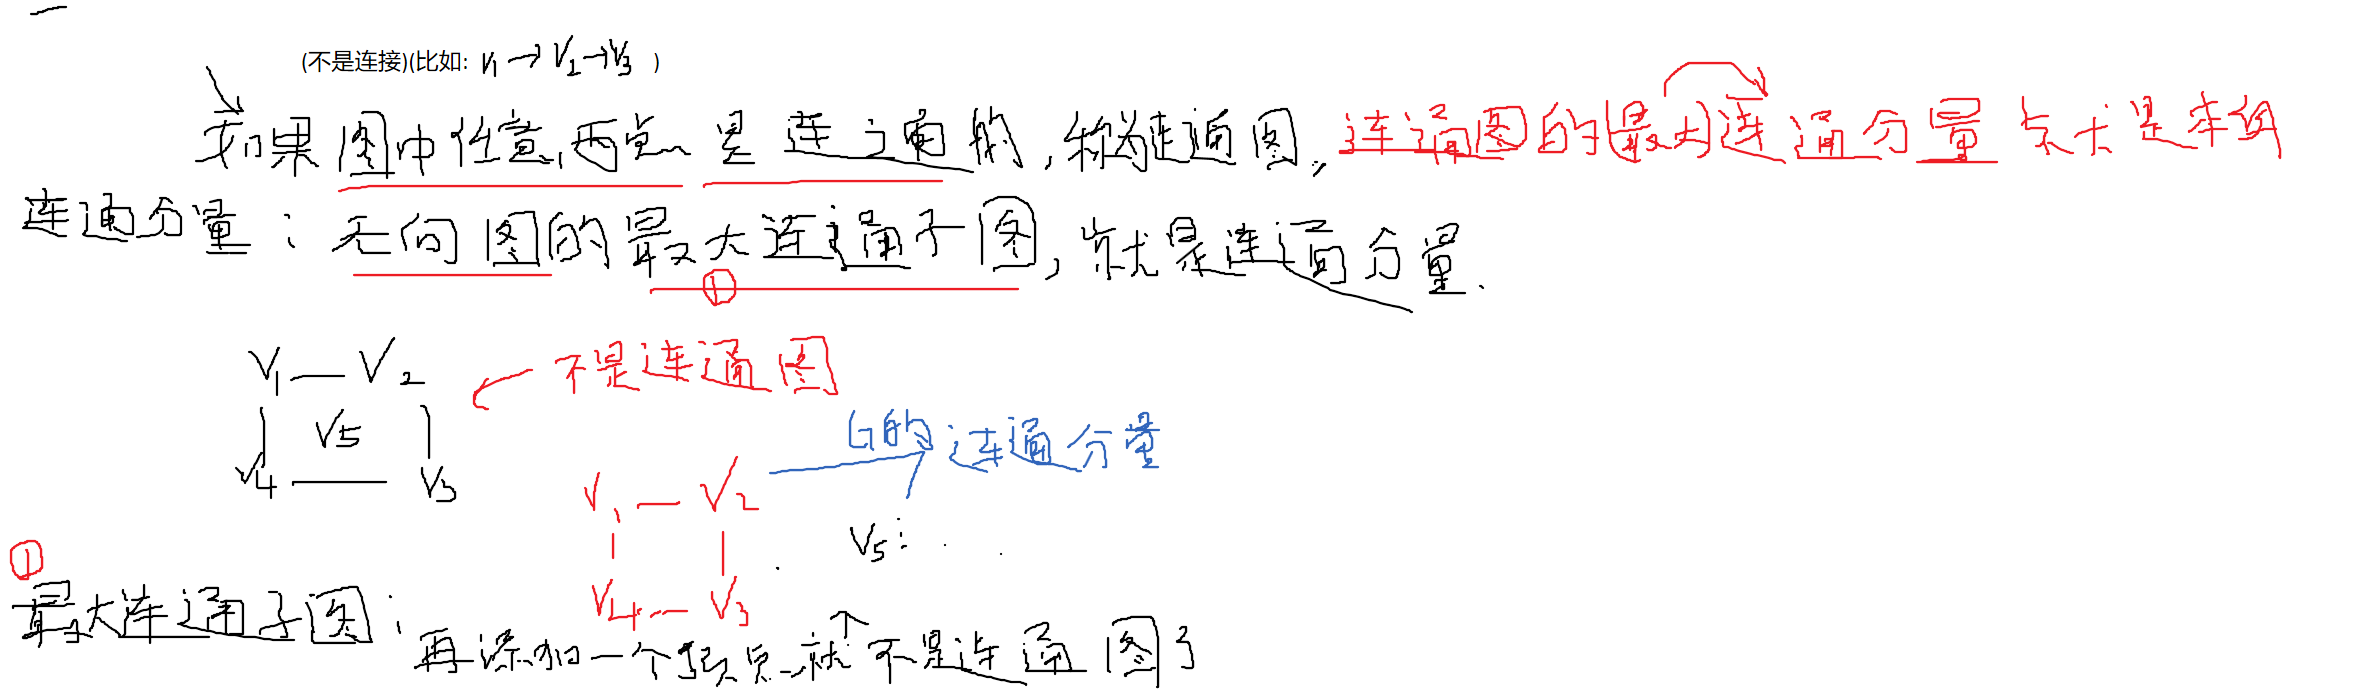 (不是连接)(比如: V1→V2→V3 )
如果图中任意两点是连通的,称为连通图, 连通图的(最大)连通分量就是本身
连通分量:无向图的最大连通子图,就是连通分量.
①
V1—V2
不是连通图
V5
V4—V3
G的连通分量
V1—V2
V5:
V4—V3
①
最大连通子图:
再添加一个顶点就不是连通图了